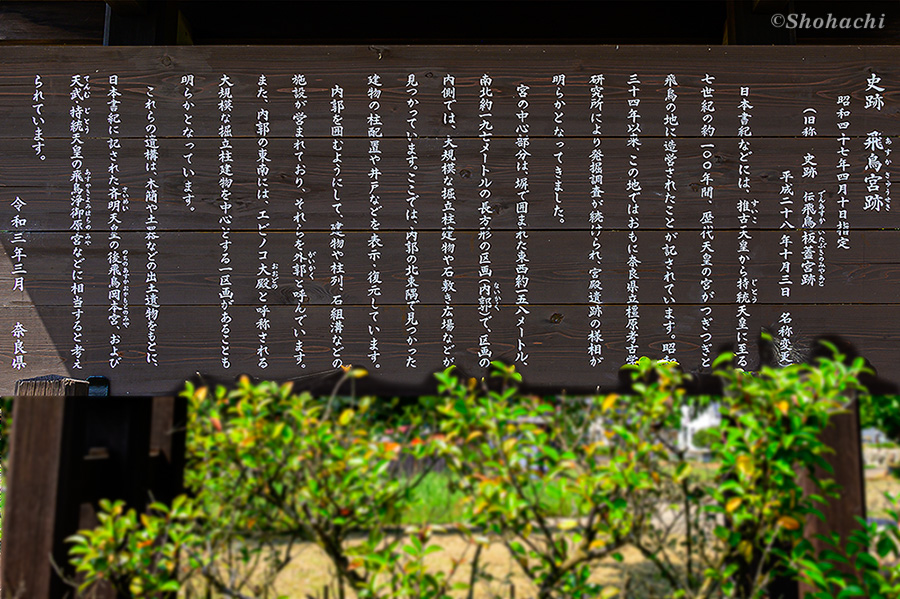 ©Shohachi
史跡 飛鳥宮跡
あすか きゅうせき
昭和四十七年四月十日指定
(旧称 史跡 伝飛鳥板蓋宮跡
でんあすか いたぶきのみやあと
平成二十八年十月三日 名称変更
日本書紀などには、推古天皇から持統天皇に至る
すいこ
じとう
七世紀の約一〇〇年間、歴代天皇の宮がつぎつぎと
飛鳥の地に造営されたことが記されています。昭和
三十四年以来、この地ではおもに奈良県立橿原考古学
研究所により発掘調査が続けられ、宮殿遺跡の様相が
明らかとなってきました。
宮の中心部分は、塀で囲まれた東西約一五八メートル、
南北約一九七メートルの長方形の区画(内郭)で、区画の
ないかく
内側では、大規模な掘立柱建物や石敷き広場などが
見つかっています。ここでは、内郭の北東隅で見つかった
建物の柱配置や井戸などを表示・復元しています。
内郭を囲むようにして、建物や柱列、石組溝などの
施設が営まれており、それらを外郭と呼んでいます。
がいかく
また、内郭の東南には、エビノコ大殿と呼称される
おおどの
大規模な掘立柱建物を中心とする一区画があることも
明らかとなっています。
これらの遺構は、木簡や土器などの出土遺物をもとに、
日本書紀に記された斉明天皇の後飛鳥岡本宮、および
さいめい
のちのあすかおかもとのみや
天武・持統天皇の飛鳥浄御原宮などに相当すると考え
てんむ じとう
あすかきよみはらのみや
られています。
令和三年三月 奈良県